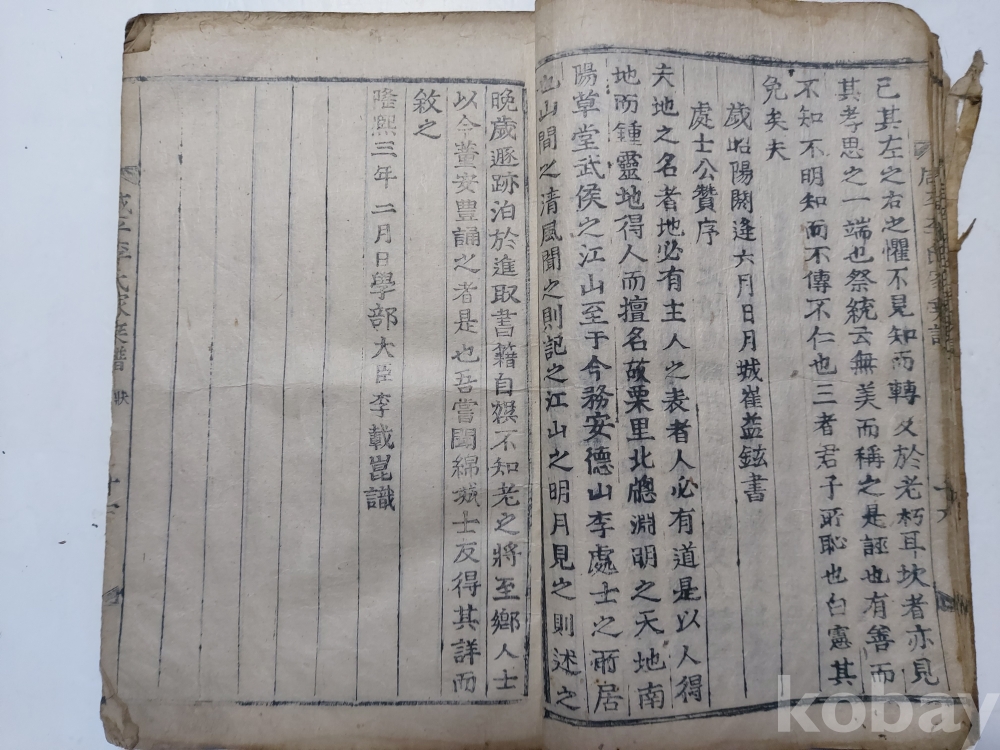 己其左之右之懼不見知而轉及於老朽耳坎者亦見
其孝思之一端也祭統云無美而稱之是誣也有善而
不知不明知而不傳不仁也三者君子所恥也白憲其
免矣夫
歲昭陽閼逢六月日月城崔益鉉書
處士公贊序
夫地之名者地必有主人之表者人必有道是以人得
地而鍾靈地得人而擅名故栗里北牕淵明之天地南
陽草堂武侯之江山至于今務安德山李處士之所居
江山間之清風聞之則記之江山之明月見之則述之
晚歲遯跡泊於進取書籍自娛不知老之將至鄉人士
以今薰安豊誦之者是也吾嘗聞綿城士友得其詳而
敘之
隆熙三年二月日學部大臣李載崑識
咸平李氏家乘譜
十一
kobay